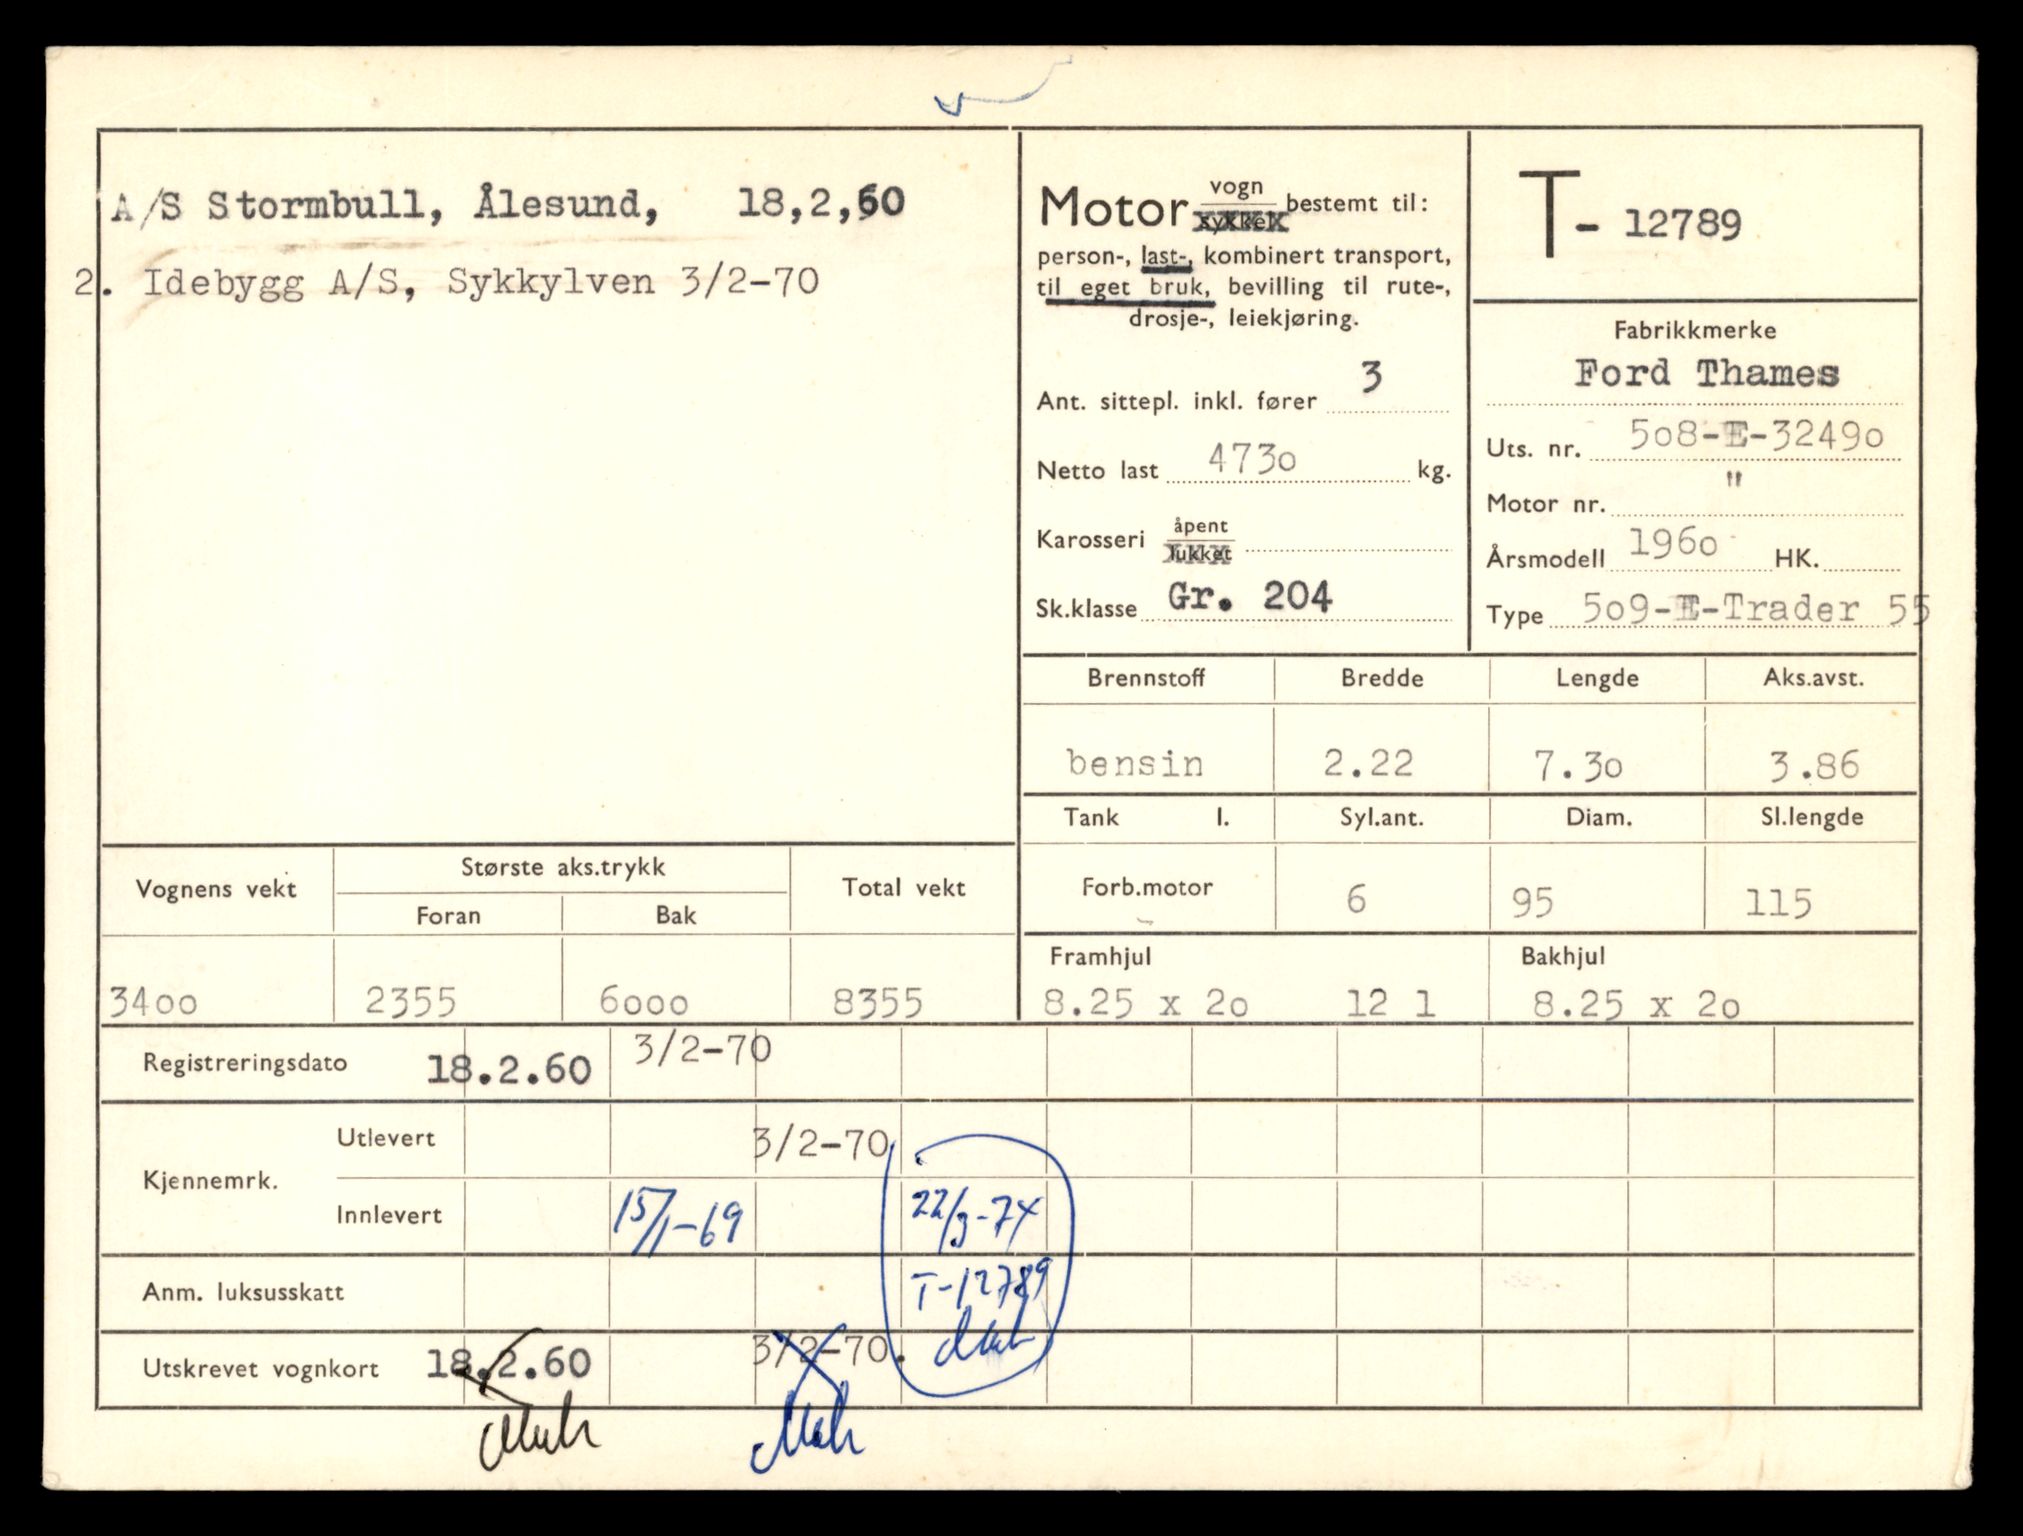 A/S Stormbull, Ålesund, 18,2,60
2. Idebygg A/S, Sykkylven 3/2-70
Motor vogn bestemt til:
sykkel
person-, last-, kombinert transport,
til eget bruk, bevilling til rute-,
drosje-, leiekjøring.
Ant. sittepl. inkl. fører 3
Netto last 4730 kg.
Karosseri åpent
lukket
Sk.klasse Gr. 204
T- 12789
Fabrikkmerke
Ford Thames
Uts. nr. 508-E-32490
Motor nr. "
Årsmodell 1960 HK.
Type 509-E-Trader 55
Brennstoff Bredde Lengde Aks.avst.
bensin 2.22 7.30 3.86
Tank l. Syl.ant. Diam. Sl.lengde
Forb.motor 6 95 115
Framhjul Bakhjul
8.25 x 20 12 1 8.25 x 20
Vognens vekt Største aks.trykk Total vekt
Foran Bak
3400 2355 6000 8355
Registreringsdato 18.2.60 3/2-70
Kjennemrk. Utlevert 3/2-70
Innlevert 15/1-69 22/3-74
T-12789
Anm. luksusskatt
Utskrevet vognkort 18.2.60 3/2-70.